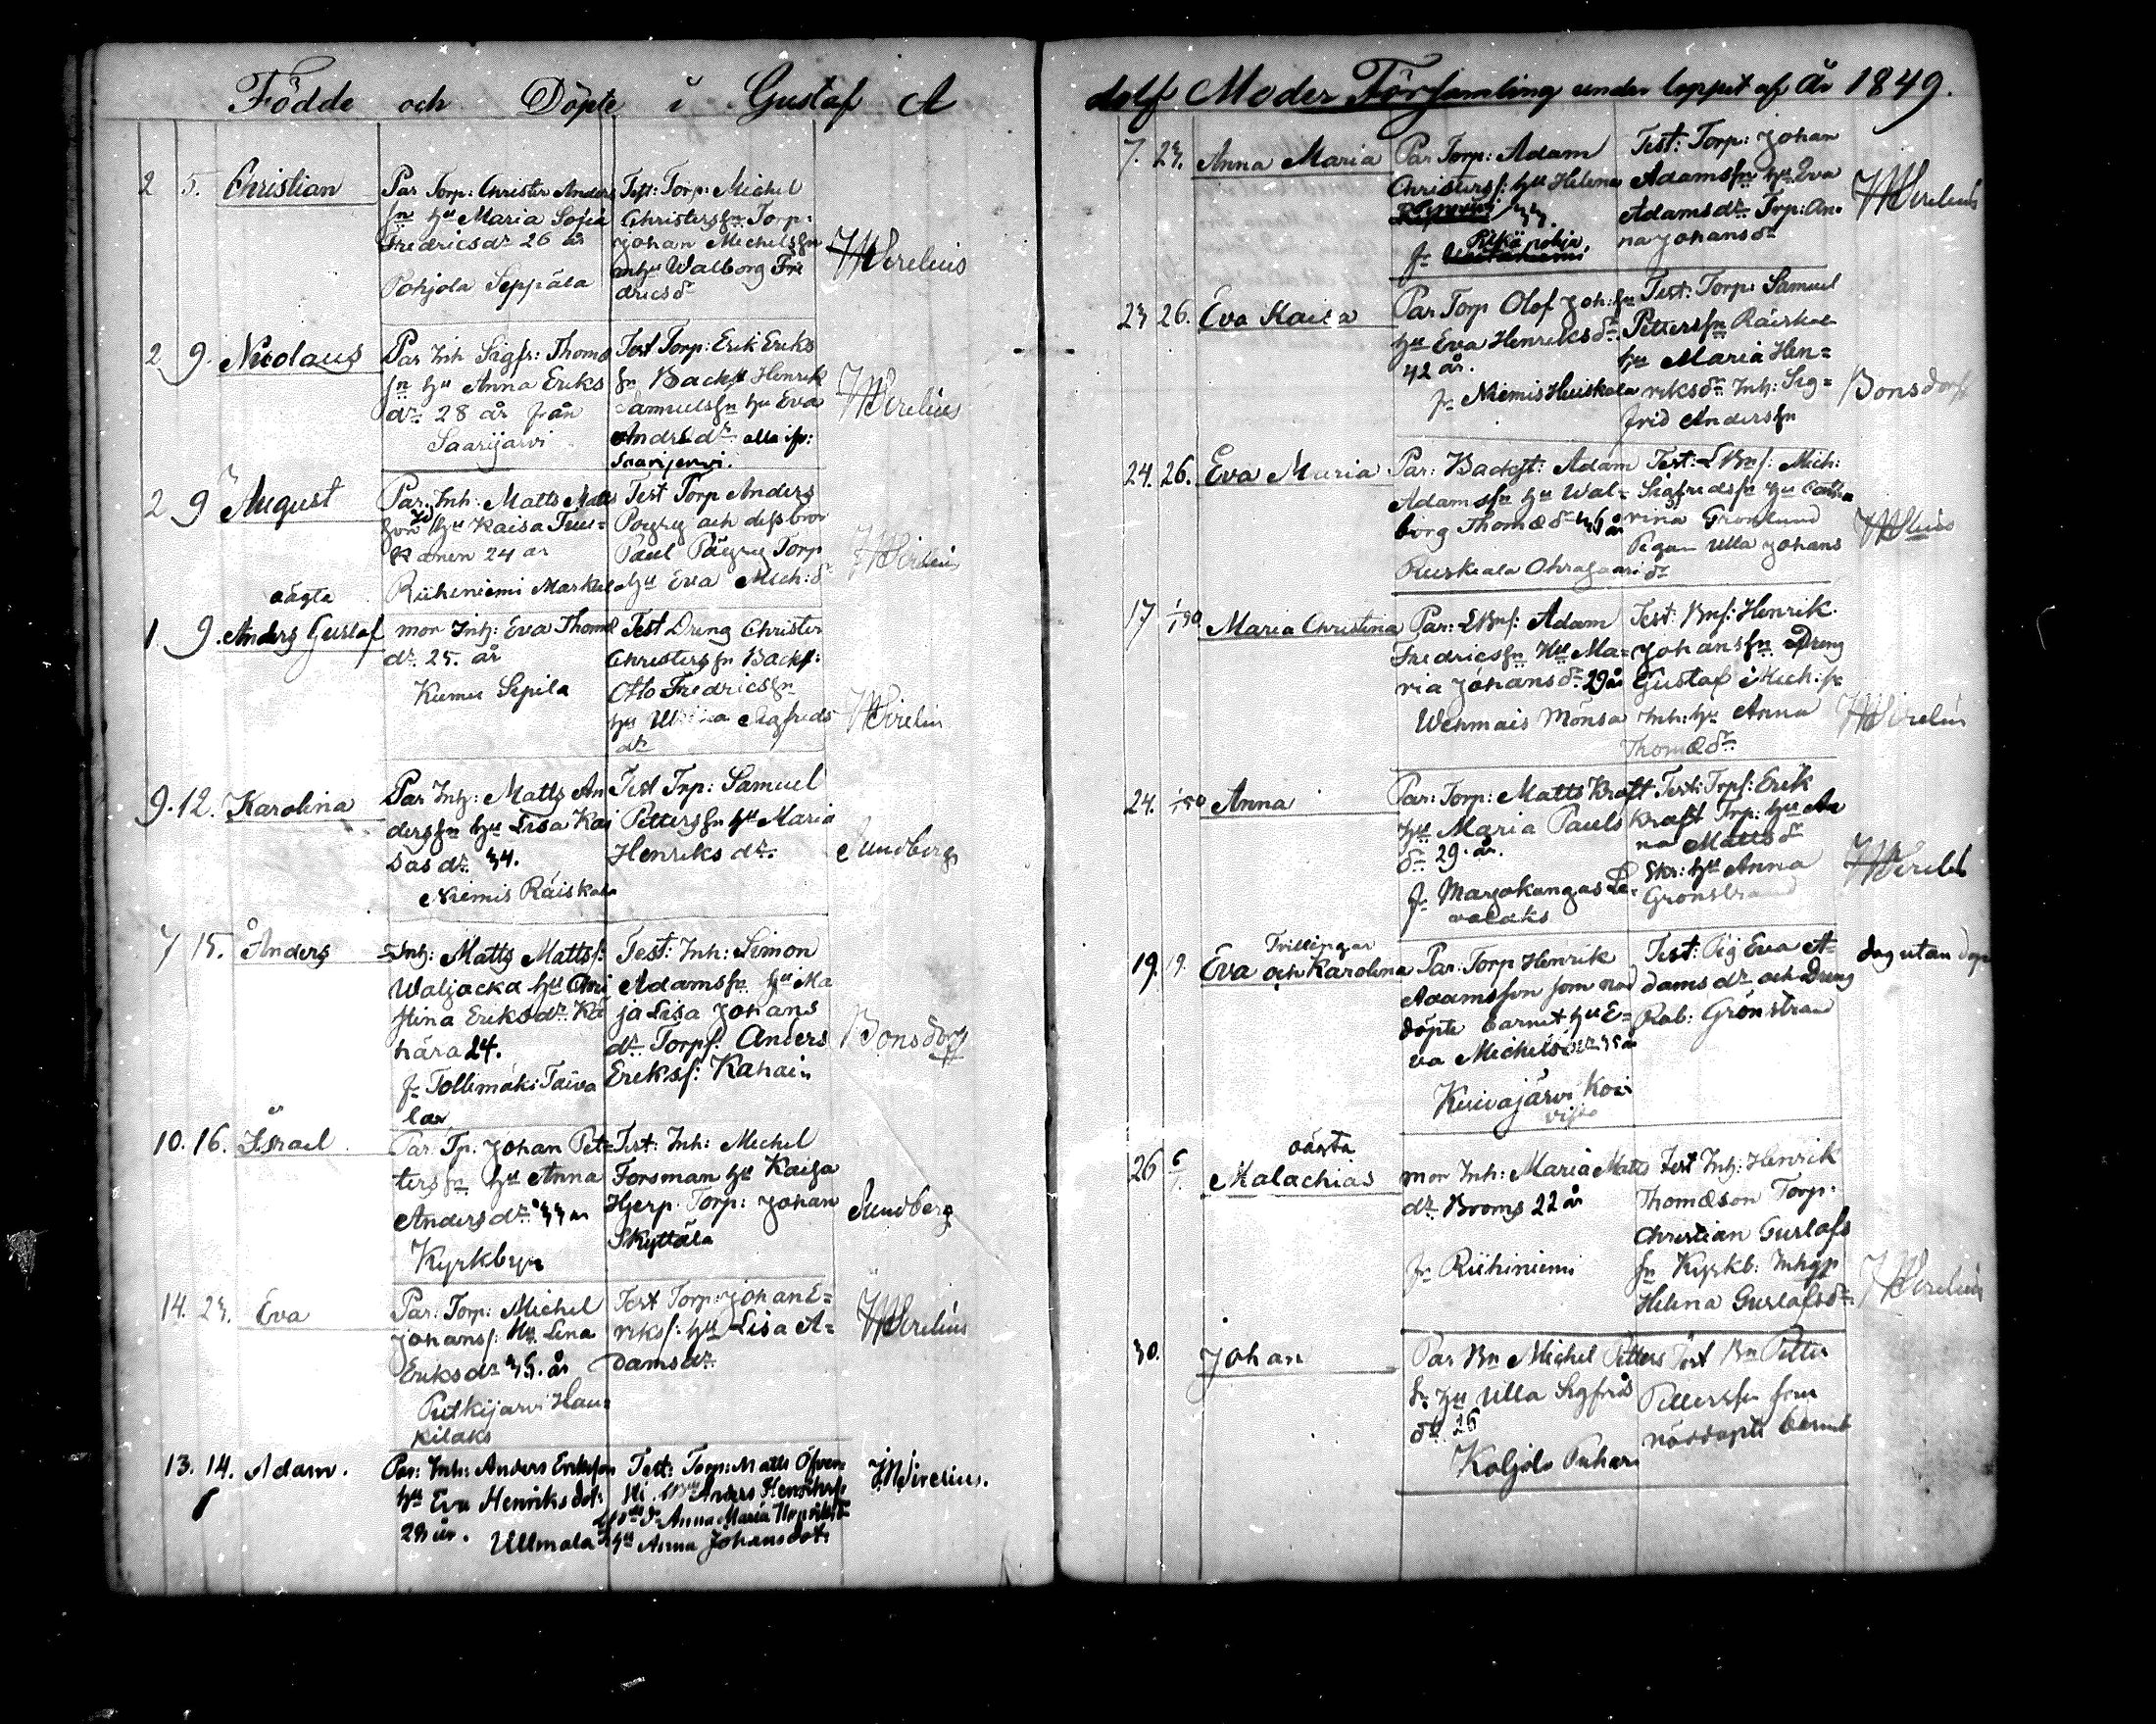 Födde och Döpte i Gustaf A
2 5. Christian
Par Torp: Christer Anders
sn hu Maria Sofia
Fredricsdr 26 år
Pohjola Seppäla
Test: Torp: Michel
Christerssn Torp:
Johan Michelssn
mhu Walborg Fre
dricsdr
Wirelius
2 9. Nicolaus
Par Inh Sigfr: Thomæ
sn hu Anna Eriks
dr 28 år från
Saarijärvi
Test Torp: Erik Eriks
sn Backst Henrik
Samuelssn hu Eva
Andrsdr alla ifr:
Saarijervi.
Wirelius
2 9 August
Par. Inh: Matts Matts
son hu Kaisa
kanen 24 år
Riiheniemi Markula
Test Torp Anders
Pöyry och dess bror
Paul Pöyry Torp
hu Eva Mich: dr
Wirelius
oägta
1. 9. Anders Gustaf
mor Inh: Eva Thomæ
dr. 25. år
Kumu Sepila
Test Dreng Christer
Christerssn Backst:
Otto Fredricssn
hu Ulrica Sigfreds
dr
Wirelius
9. 12. Karolina
Par Inh: Matts An
derssn hu Lisa Kai
sas dr. 34.
Niemis Räiskala
Test Trp: Samuel
Petterssn hu Maria
Henriks dr.
Sundberg
7 15. Anders
Inh: Matts Mattss:
Waljacka hu Chri
stina Eriksdr. Kä
härä 24.
fr Tollimäki Taiva
lax
Test: Inh: Simon
Adamssn hu Ma
ja Lisa Johans
dr Torps: Anders
Erikss: Kahain
Bonsdorff
10. 16. Israel
Par: Tp. Johan Pet=
terssn hu Anna
Andersdr. 33 år
Kyrkbyn
Test: Inh: Michel
Forsman hu Kaisa
Hjerp. Torp: Johan
Skyttäla
Sundberg
14. 23. Eva
Par: Torp: Michel
Johanss: hu Lena
Eriksdr 35. år
Putkijärvi Hau=
kilaks
Test Torp: Johan E=
rikss: hu Lisa A=
damsdr.
Wirelius
13. 14. Adam.
Par: Inh: Anders Eriksson
hu Eva Henriksdot:
23 år. Ullmala
Test: Torp: Matts Öfver
Anders Henrikss:
Anna Maria Henriksdr
hu Anna Johansdot:
Wirelius.
dolf Moder Församling under loppet af År 1849.
7. 23. Anna Maria
Par Torp: Adam
Christerss: hu Helena
33.
fr Pitkäpohja
Test: Torp: Johan
Adamssn hu Eva
Adamsdr. Trp: An=
na Johansdr
Wirelius
23 26. Eva Kaisa
Par Torp Olof Joh:sn
hu Eva Henriksdr.
42 år.
fr Niemis Huiskala
Test: Torp: Samuel
Petterssn Räiskala
hu Maria Hen=
riksdr Inh: Sig=
frid Anderssn
Bonsdorff
24. 26. Eva Maria
Par: Backst: Adam
Adamssn hu Wal=
borg Thomædr 36 år
Ruskiala Ohragaari
Test: LBns: Mich:
Sigfredssn hu Catha
rina Grönlund
Pigan Ulla Johans
dr
Wirelius
17 1/150 Maria Christina
Par: LBns: Adam
Fredricssn Hu Ma=
ria Johansdr. 29 år
Wehmais Mönsä
Test: Bns: Henrik
Johanssn Dreng
Gustaf Mich: sn
Inh: hu Anna
Thomædr
Wirelius
24. 1/150 Anna
Par: Torp: Matts Kraft
hu Maria Pauls
dr 29. år.
fr Marjokangas Le=
valaks
Test: Torps: Erik
Kraft Trp: hu An
na Mattsdr
Skr: hu Anna
Grönstrand
Wirelius
19. 19. Trillingar
Eva och Karolina
Par: Torp Henrik
Adamsson som nöd
döpte barnet hu E=
va Michelsdr 35 år
Kuivajärvi Koi
visto
Test: Pig Eva A=
damsdr och Dreng
Rob: Grönstrand
dog utan dop
oägta
26 6/1 Malachias
mor Inh: Maria Matts
dr. Broms 22 år
fr Riihiniemi
Test Inh: Henrik
Thomæson Torp:
Christian Gustafs
sn Kyrkb: Inhyp
Helena Gustafsdr.
Wirelius
30. Johan
Par Bn Michel Petters
sn hu Ulla Sigfrids
dr 26
Koljola Puhari
Test Bn Petter
Petterssn som
nöddöpte barnet